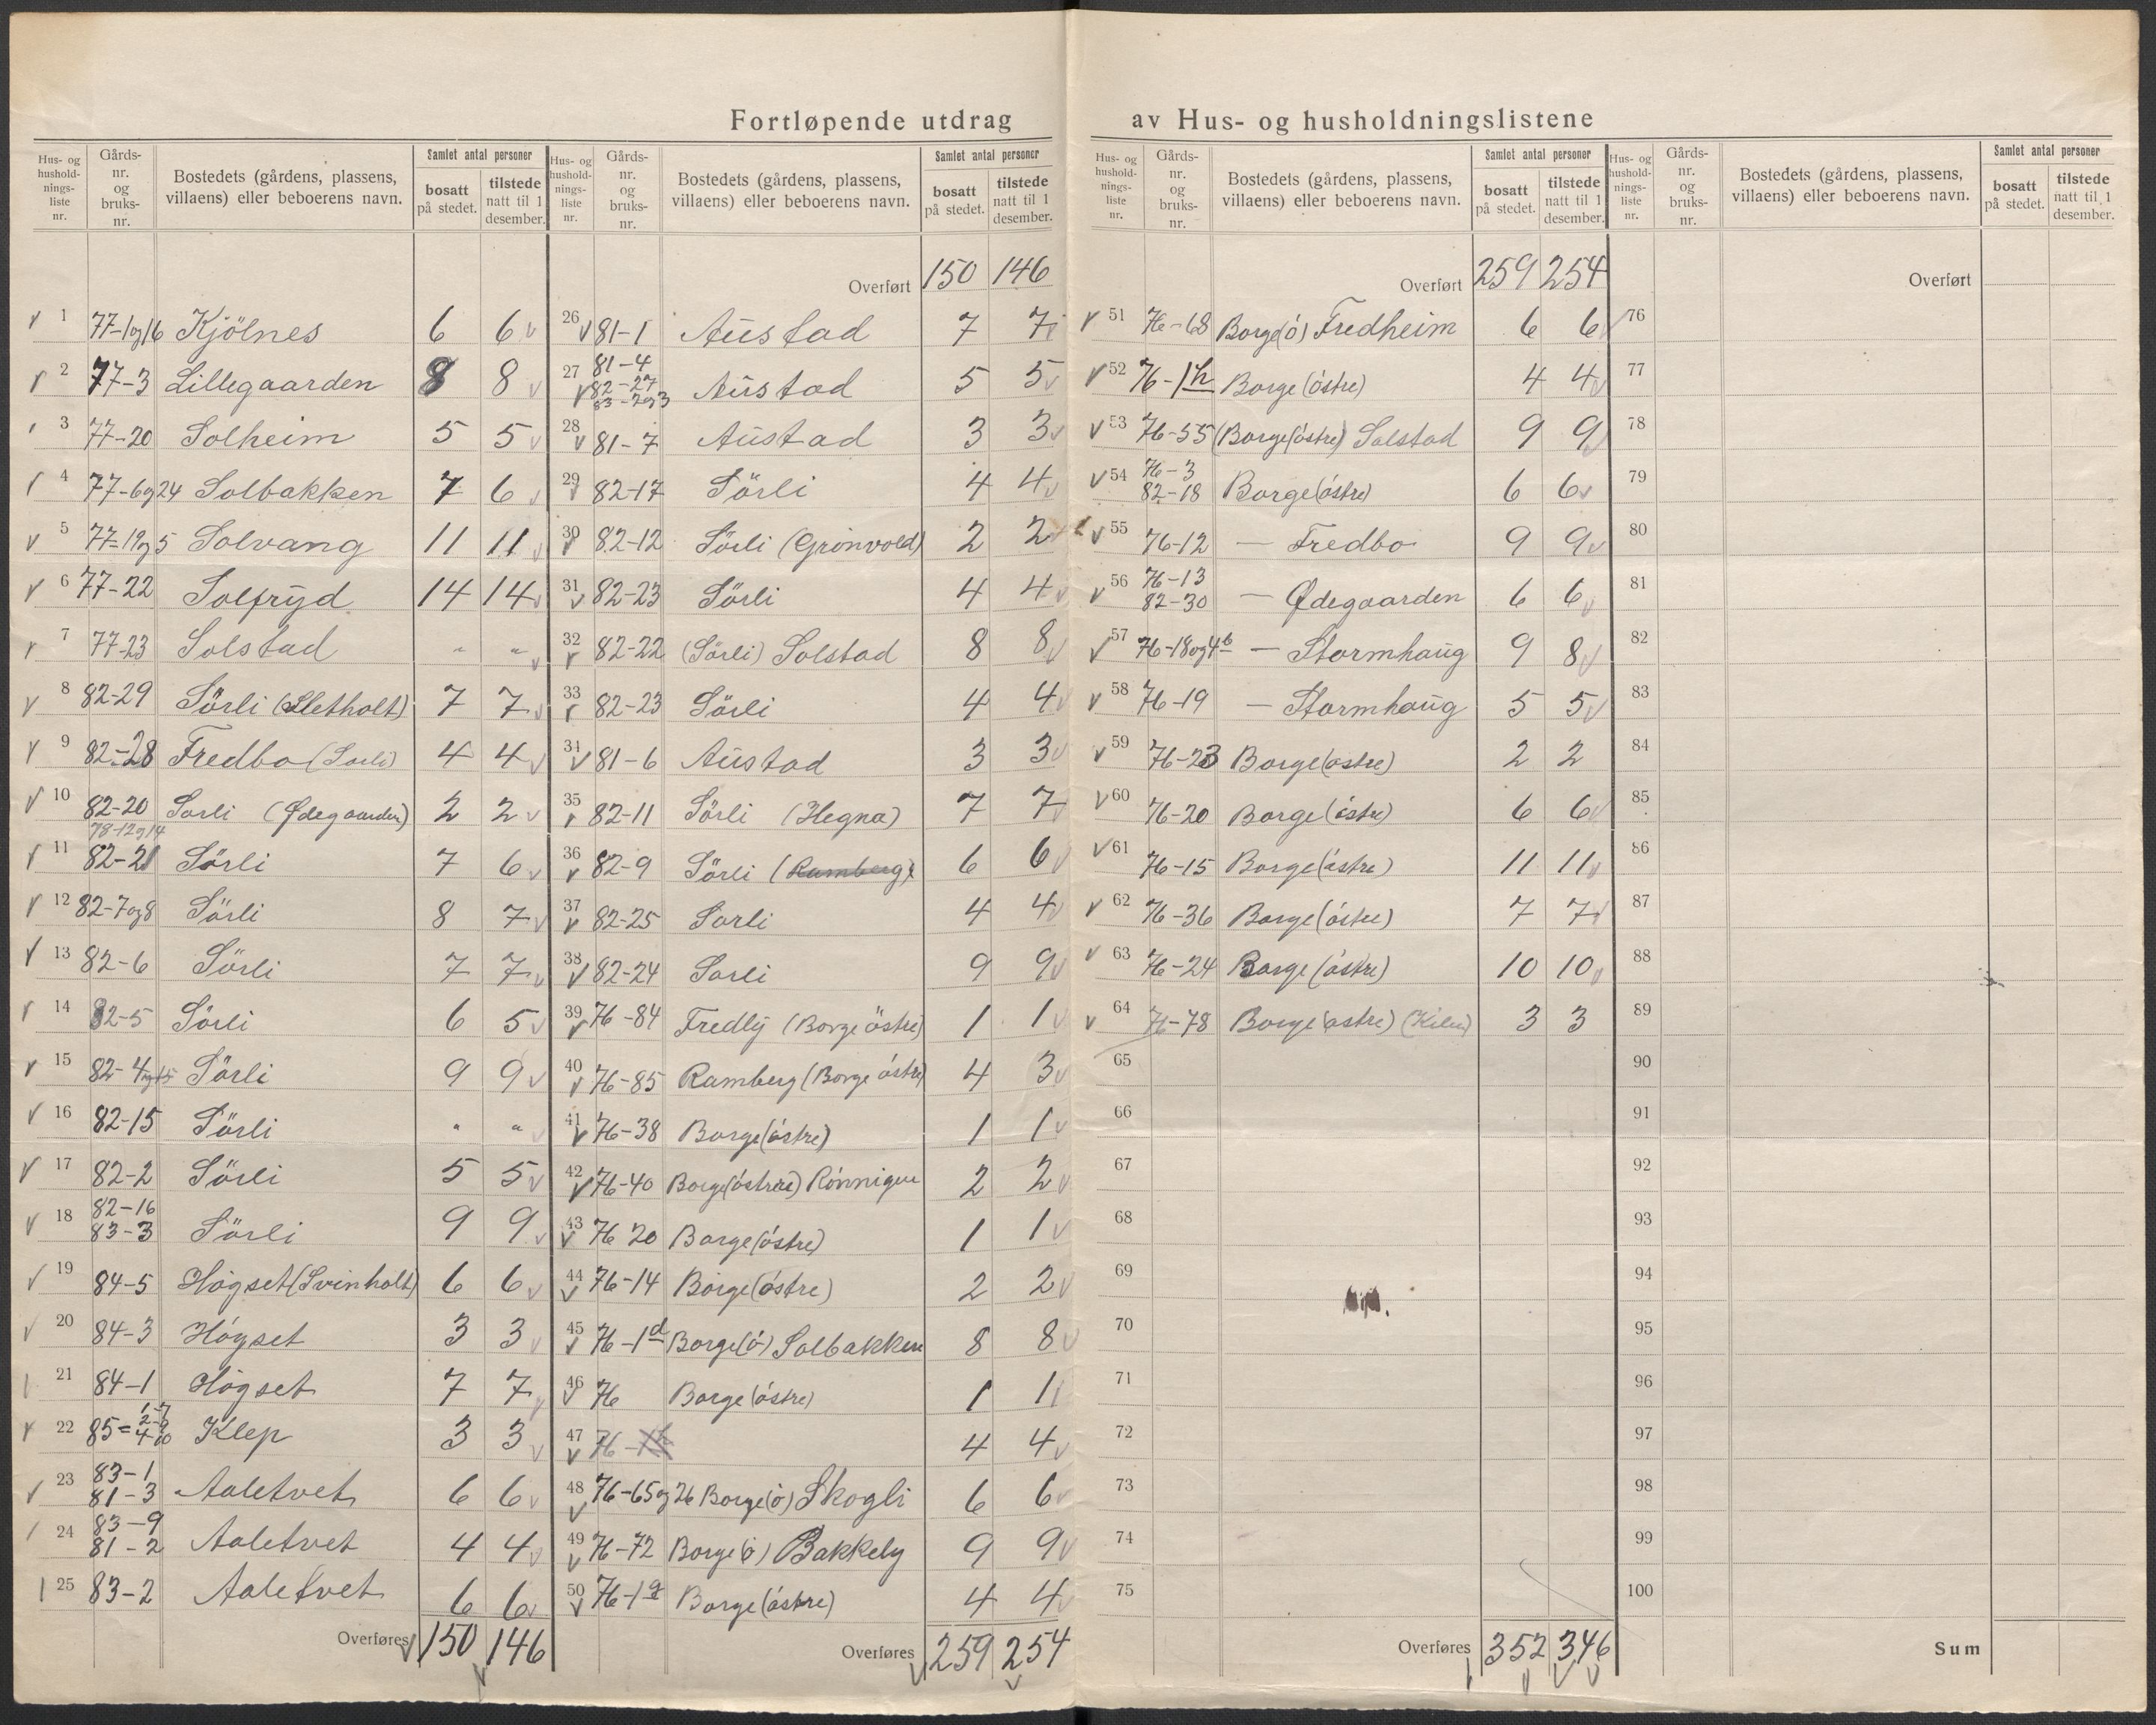 Fortløpende utdrag av Hus- og husholdningslistene
Hus- og hushold- nings- liste nr. | Gårds- nr. og bruks- nr. | Bostedets (gårdens, plassens, villaens) eller beboerens navn. | Samlet antal personer | bosatt på stedet. | tilstede natt til 1 desember.
1 77-1og16 Kjölnes 6 6
2 77-3 Lillegaarden 8 8
3 77-20 Solheim 5 5
4 77-6og24 Solbakken 7 6
5 77-19og5 Solvang 11 11
6 77-22 Solfryd 14 14
7 77-23 Solstad " "
8 82-29 Sörli (Sletholt) 7 7
9 82-28 Fredbo (Sorli) 4 4
10 82-20 Sorli (Ødegaarden) 2 2
78-12og14
11 82-21 Sörli 7 6
12 82-7og8 Sörli 8 7
13 82-6 Sörli 7 7
14 82-5 Sörli 6 5
15 82-4og15 Sörli 9 9
16 82-15 Sörli " "
17 82-2 Sörli 5 5
18 82-16 83-3 Sörli 9 9
19 84-5 Högset (Svinholt) 6 6
20 84-3 Högset 3 3
21 84-1 Högset 7 7
22 85= Klep 3 3
23 83-1 81-3 Aaletvet 6 6
24 83-9 81-2 Aaletvet 4 4
25 83-2 Aaletvet 6 6
Overføres 150 146
Hus- og hushold- nings- liste nr. | Gårds- nr. og bruks- nr. | Bostedets (gårdens, plassens, villaens) eller beboerens navn. | Samlet antal personer | bosatt på stedet. | tilstede natt til 1 desember.
Overført 150 146
26 81-1 Austad 7 7
27 81-4 82-27 83-2og3 Austad 5 5
28 81-7 Austad 3 3
29 82-17 Sörli 4 4
30 82-12 Sörli (Grönvold) 2 2
31 82-23 Sörli 4 4
32 82-22 (Sörli) Solstad 8 8
33 82-23 Sörli 4 4
34 81-6 Austad 3 3
35 82-11 Sörli (Hegna) 7 7
36 82-9 Sörli (Ramberg) 6 6
37 82-25 Sorli 4 4
38 82-24 Sorli 9 9
39 76-84 Fredly (Borge östre) 1 1
40 76-85 Ramberg (Borge östre) 4 3
41 76-38 Borge (östre) 1 1
42 76-40 Borge (östre) Rönnigen 2 2
43 76 20 Borge (östre) 1 1
44 76-14 Borge (östre) 2 2
45 76-1d Borge (ö) Solbakken 8 8
46 76 Borge (östre) 1 1
47 76 4 4
48 76-65og26 Borge (ö) Skogli 6 6
49 76-72 Borge (ö) Bakkely 9 9
50 76-1g Borge (östre) 4 4
Overføres 259 254
Hus- og hushold- nings- liste nr. | Gårds- nr. og bruks- nr. | Bostedets (gårdens, plassens, villaens) eller beboerens navn. | Samlet antal personer | bosatt på stedet. | tilstede natt til 1 desember.
Overført 259 254
51 76-68 Borge (ö) Fredheim 6 6
52 76-1h Borge (östre) 4 4
53 76-55 (Borge (östre) Solstad 9 9
54 76-3 82-18 Borge (östre) 6 6
55 76-12 — Fredbo 9 9
56 76-13 82-30 — Ødegaarden 6 6
57 76-18og46 — Stormhaug 9 8
58 76-19 — Stormhaug 5 5
59 76-23 Borge (östre) 2 2
60 76-20 Borge (östre) 6 6
61 76-15 Borge (östre) 11 11
62 76-36 Borge (östre) 7 7
63 76-24 Borge (östre) 10 10
64 76-78 Borge (östre) (Kilen) 3 3
65
66
67
68
69
70
71
72
73
74
75
Overføres 352 346
Hus- og hushold- nings- liste nr. | Gårds- nr. og bruks- nr. | Bostedets (gårdens, plassens, villaens) eller beboerens navn. | Samlet antal personer | bosatt på stedet. | tilstede natt til 1 desember.
Overført
76
77
78
79
80
81
82
83
84
85
86
87
88
89
90
91
92
93
94
95
96
97
98
99
100
Sum